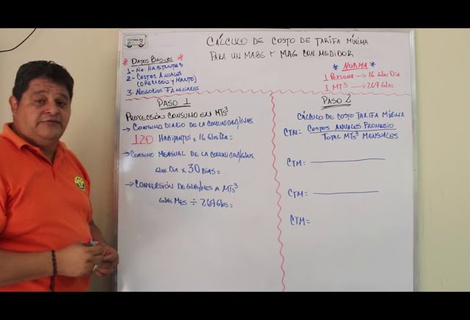 CÁLCULO DE COSTO DE TARIFA MÍNIMA
PARA UN MABE Y MAG CON MEDIDOR
* DATOS BÁSICOS *
1- No. HABITANTES
2- COSTOS ANUALES
3- INGRESOS FAMILIARES
* NORMA *
1 PERSONA → 16 GLNS DÍA
1 MTS³ → 264 GLNS
PASO 1
PROYECCIÓN CONSUMO EN MTS³
→ CONSUMO DIARIO DE LA COMUNIDAD/GLNS
120 HABITANTES x 16 GLNS DÍA =
→ CONSUMO MENSUAL DE LA COMUNIDAD/GLNS
GLNS DÍA x 30 DÍAS =
→ CONVERSIÓN DE GALONES A MTS³
GLNS MES ÷ 264 GLNS =
PASO 2
CÁLCULO DE COSTO TARIFA MÍNIMA
CTM = COSTOS ANUALES PROMEDIO
TOTAL MTS³ MENSUALES
CTM =
CTM =
CTM =